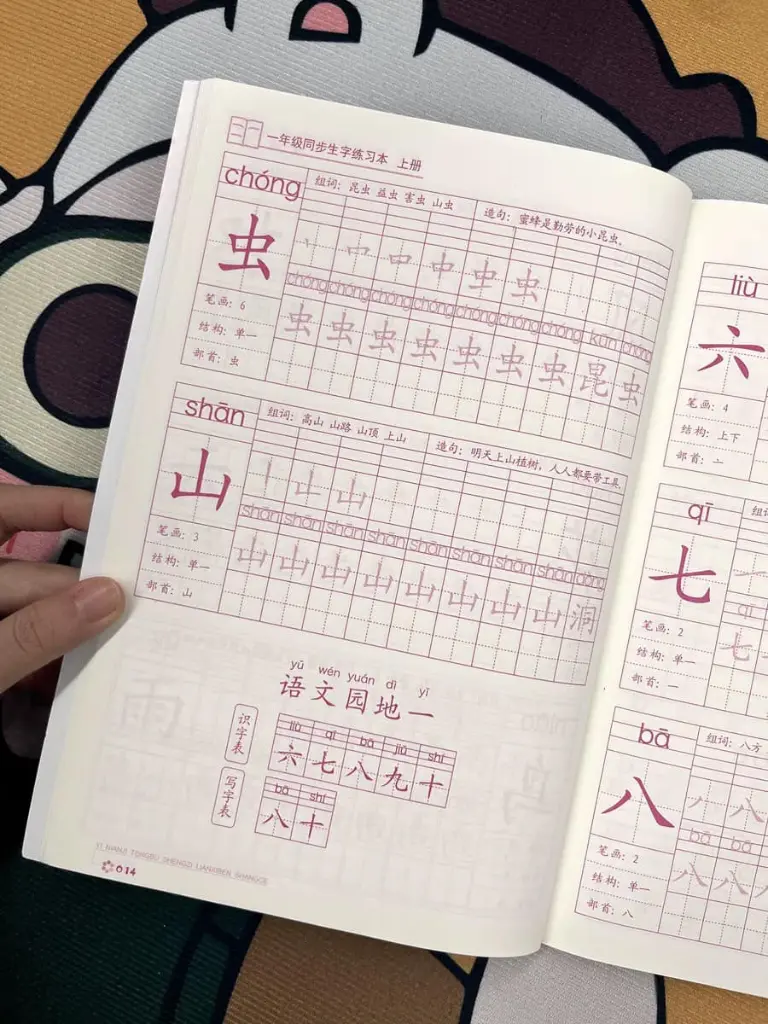 一年级同步生字练习本 上册
chóng
组词：昆虫 益虫 害虫 山虫
造句：蜜蜂是勤劳的小昆虫。
虫
虫
chóng chóng chóng chóng chóng chóng chóng kūn chóng
虫 虫 虫 虫 虫 虫 虫 昆 虫
笔画：6
结构：单一
部首：虫
shān
组词：高山 山路 山顶 上山
造句：明天上山植树，人人都要带工具。
山
山
shān shān shān shān shān shān shān shān dòng
山 山 山 山 山 山 山 山 洞
笔画：3
结构：单一
部首：山
yǔ wén yuán dì yī
语文园地一
识字表
liù qī bā jiǔ shí
六 七 八 九 十
写字表
bā shí
八 十
YI NIANJI TONGBU SHENGZI LIANXIBEN SHANGCE
014
liù
六
笔画：4
结构：上下
部首：亠
qī
组
七
qī
七
笔画：2
结构：单一
部首：一
bā
组词：八方
八
bā bā
八 八
笔画：2
结构：单一
部首：八